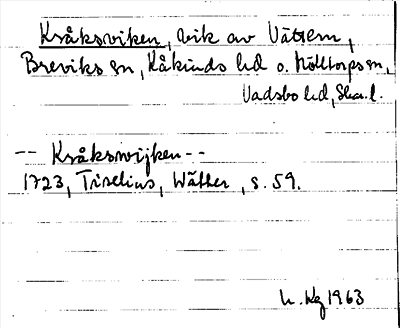 Kråksviken, vik av Vättern,
Breviks sn, Kåkinds hd o. Mölltorps sn,
Vadsbo hd, Skar. l.
-- Kråkswijken --
1723, Tiselius, Wätter, s. 59.
1963